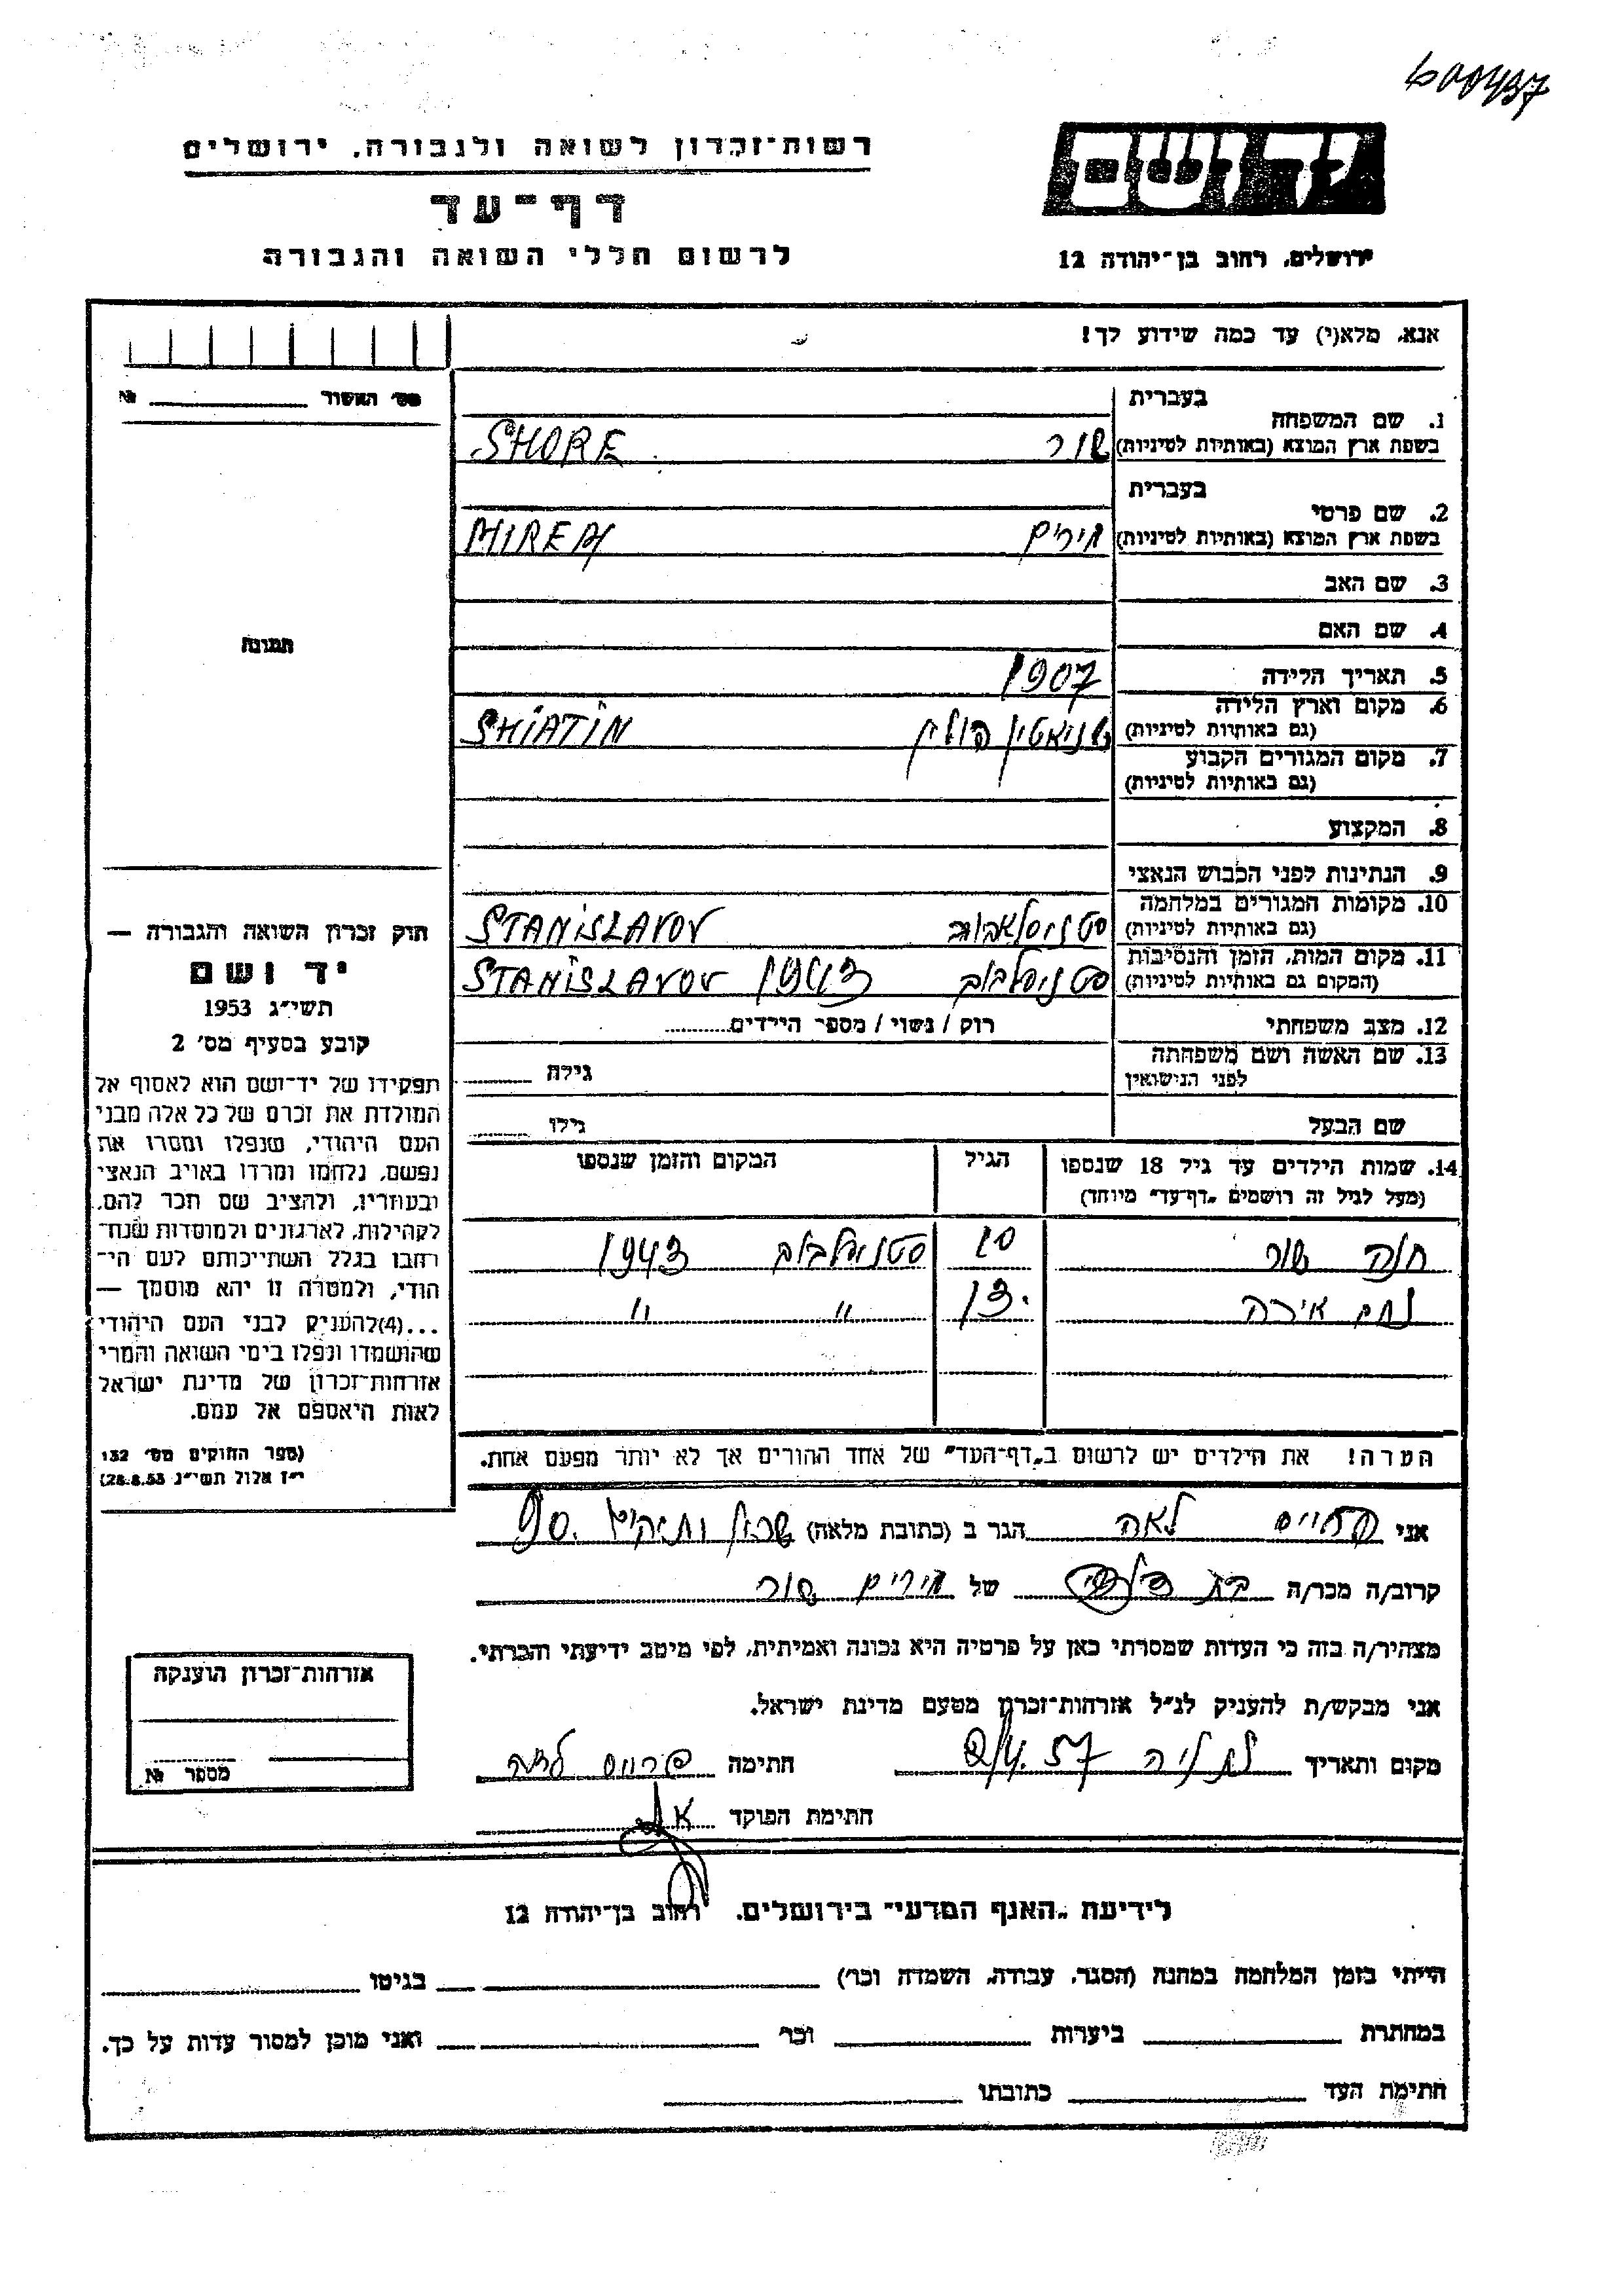 רשות־זכרון לשואה ולגבורה, ירושלים
דף־עד
לרשום חללי השואה והגבורה
יד ושם
ירושלים, רחוב בן־יהודה 12
אנא, מלא(י) עד כמה שידוע לך!
מס׳ האשור № ________
תמונה
בעברית
1. שם המשפחה
בשפת ארץ המוצא (באותיות לטיניות) שור SHORE
בעברית
2. שם פרטי
בשפת ארץ המוצא (באותיות לטיניות) מירים MIREM
3. שם האב
4. שם האם
5. תאריך הלידה 1907
6. מקום וארץ הלידה
(גם באותיות לטיניות) שניאטין פולין SHIATIN
7. מקום המגורים הקבוע
(גם באותיות לטיניות)
8. המקצוע
9. הנתינות לפני הכבוש הנאצי
10. מקומות המגורים במלחמה
(גם באותיות לטיניות) סטניסלאבוב STANISLAVOV
11. מקום המות, הזמן והנסיבות
(המקום גם באותיות לטיניות) סטניסלבוב 1943 STANISLAVOV
12. מצב משפחתי רוק / נשוי / מספר הילדים
13. שם האשה ושם משפחתה
לפני הנישואין גילה
שם הבעל גילו
14. שמות הילדים עד גיל 18 שנספו
(מעל לגיל זה רושמים „דף־עד״ מיוחד)
הגיל
המקום והזמן שנספו
חנה שור 10 סטניסלבוב 1943
13 " "
הערה! את הילדים יש לרשום ב„דף־העד״ של אחד ההורים אך לא יותר מפעם אחת.
חוק זכרון השואה והגבורה —
יד ושם
תשי״ג 1953
קובע בסעיף מס׳ 2
תפקידו של יד־ושם הוא לאסוף אל
המולדת את זכרם של כל אלה מבני
העם היהודי, שנפלו ומסרו את
נפשם, נלחמו ומרדו באויב הנאצי
ובעוזריו, ולהציב שם וזכר להם,
לקהילות, לארגונים ולמוסדות שנח־
רבו בגלל השתייכותם לעם הי־
הודי, ולמטרה זו יהא מוסמך —
...(4) להעניק לבני העם היהודי
שהושמדו ונפלו בימי השואה והמרי
אזרחות־זכרון של מדינת ישראל
לאות היאספם אל עמם.
(ספר החוקים מס׳ 132
י״ז אלול תשי״ג 28.8.53)
אני לאה הגר ב (כתובת מלאה)
קרוב/ה מכר/ה בת של מירים שור
מצהיר/ה בזה כי העדות שמסרתי כאן על פרטיה היא נכונה ואמיתית, לפי מיטב ידיעתי והכרתי.
אני מבקש/ת להעניק לנ״ל אזרחות־זכרון מטעם מדינת ישראל.
מקום ותאריך נתניה 57 חתימה
חתימת הפוקד
אזרחות־זכרון הוענקה
מספר №
לידיעת „האגף המדעי״ בירושלים. רחוב בן־יהודה 12
הייתי בזמן המלחמה במחנה (הסגר, עבודה, השמדה וכר׳) בגיטו
במחתרת ביערות וכר׳ ואני מוכן למסור עדות על כך.
חתימת העד כתובתו